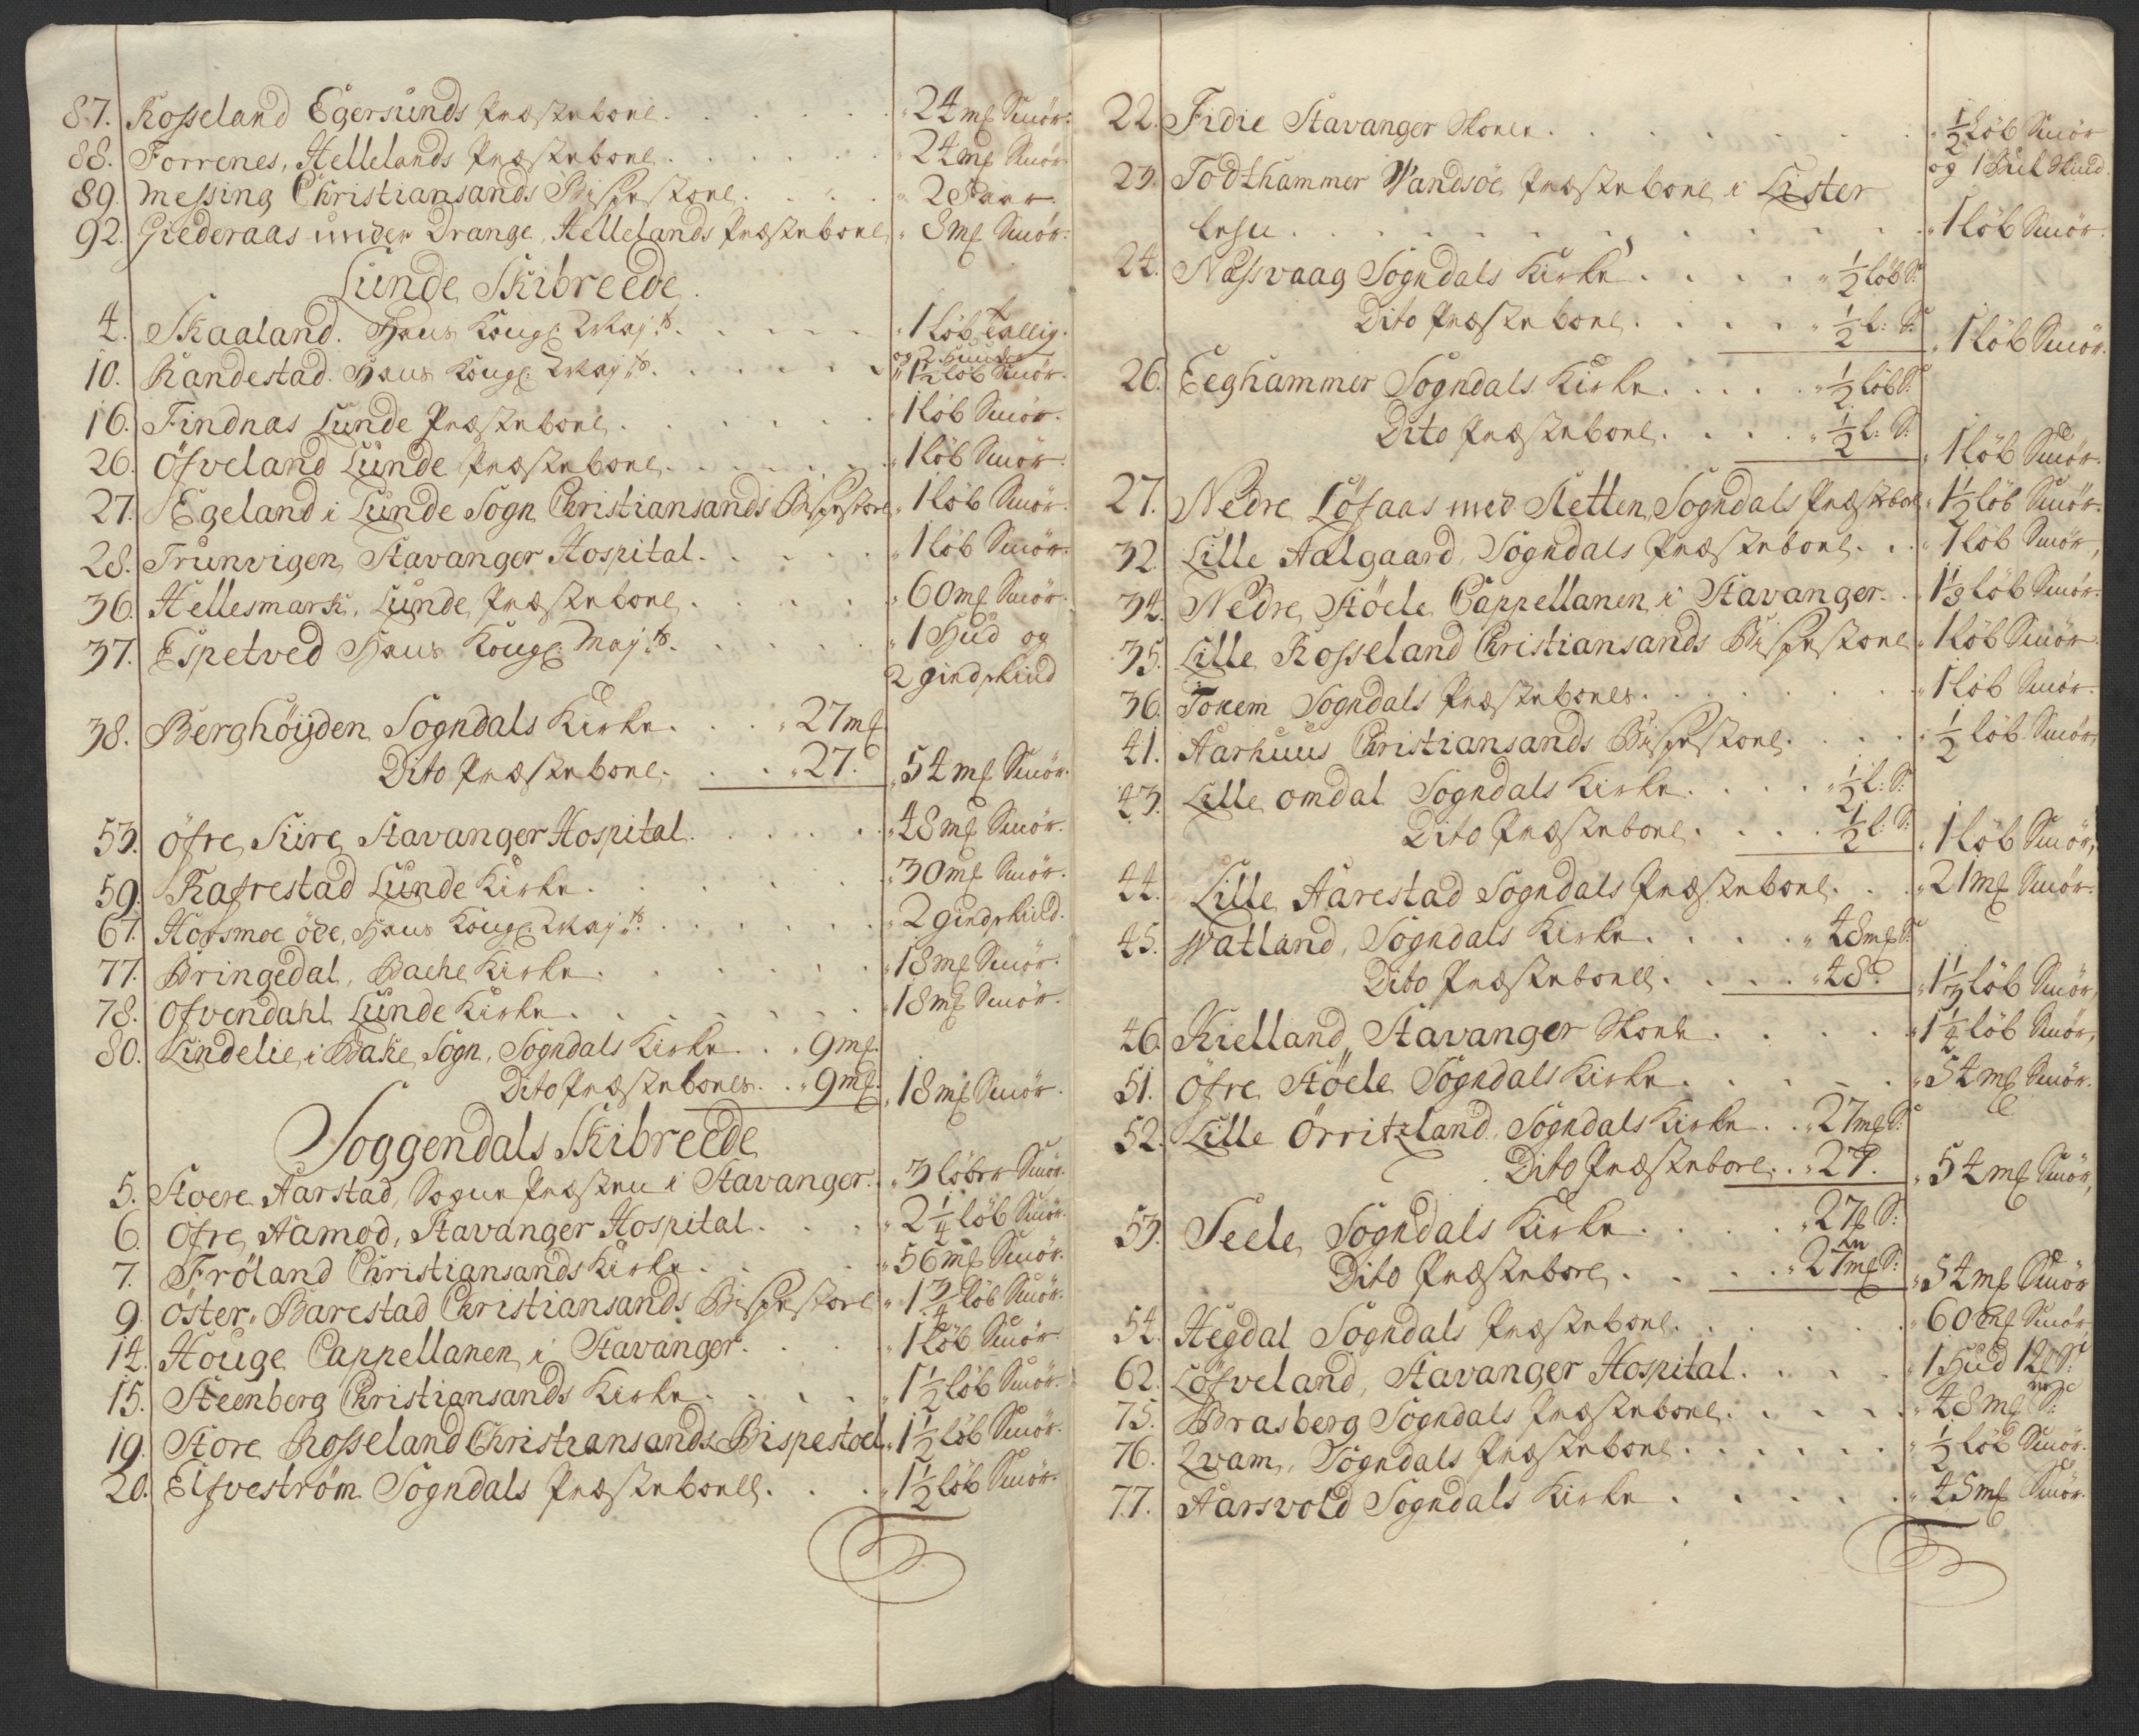 87. Rosseland Egersunds Præstebohl . . . . . 24 mƸ Smör.
88. Forrenes, Hellelands Præstebohl . . . . . 24 mƸ Smör.
89. Messing Christiansands Bispestoel . . . . 2 Spaar.
92. Giederaas under Drange, Hellelands Præstebohl, 8 mƸ Smör.
Lunde Skibreede.
4. Skaaland. Hans Kongl: Mayts. . . . . . 1 Löb Tallig.
og 2 Huuder
10. Randestad. Hans Kongl: Mayts. . . . . 1½ löb Smör.
16. Findnas Lunde Præstebohl . . . . . 1 löb Smör.
26. Öfveland Lunde Præstebohl . . . . . 1 löb Smör.
27. Egeland i Lunde Sogn Christiansands Bispestoel, 1 löb Smör.
28. Trunvigen, Stavanger Hospital . . . . 1 löb Smör.
36. Hellesmark, Lunde Præstebohl . . . . 60 mƸ Smör.
37. Espetved Hans Kongl: Mayts. . . . . 1 Hud og
2 giedskind
38. Berghöyden Sogndals Kirke . . . 27 mƸ
Dito Præstebohl . . . 27. 54 mƸ Smör.
53. Öfre Sire, Stavanger Hospital . . . . 48 mƸ Smör.
59. Rafrestad Lunde Kirke . . . . . 30 mƸ Smör.
61. Horsmoe öde, Hans Kongl: Mayts. . . . . 2 giedskind.
77. Bringedal, Bache Kirke . . . . . 18 mƸ Smör.
78. Ofvendahl Lunde Kirke . . . . . 18 mƸ Smör.
80. Lindelie, i Bake Sogn, Sogndals Kirke . . 9 mƸ.
Dito Præstebohls . . 9 mƸ. 18 mƸ Smör.
Soggendals Skibreede
5. Stoere Aarstad, Sogne Præsten i Stavanger . . 3 löber Smör.
6. Ofre Aamod, Stavanger Hospital . . . 2¼ löb Smör.
7. Fröland Christiansands Kirke . . . . 56 mƸ Smör.
9. Öster Barestad Christiansands Bispestoel 1¾ löb Smör.
14. Houge Cappellanen i Stavanger . . . . 1 löb Smör.
15. Steenberg Christiansands Kirke . . . . 1½ löb Smör.
19. Store Rosseland Christiansands Bispestoel, 1½ löb Smör.
20. Elfveström Sogndals Præstebohl . . . 1½ löb Smör.
22. Fidie Stavanger Skole . . . . . . ½ löb Smör
og 1 Buk Skind.
23. Todthammer Vandsöe Præstebohl i Lister
Lehn . . . . . . . . . . 1 löb Smör.
24. Nassvaag Sogndals Kirke . . . . ½ löb S:
Dito Præstebohl . . . . ½ l: S: 1 löb Smör.
26. Eeghammer Sogndals Kirke . . . . ½ löb S:
Dito Præstebohl . . . . ½ l: S: 1 löb Smör.
27. Nedre Löfaas med Sletten, Sogndals Præstebohl, 1½ löb Smör.
32. Lille Aalgaard, Sogndals Præstebohl . . 1 löb Smör,
34. Nedre Stöele Cappellanen i Stavanger . . 1⅓ löb Smör.
35. Lille Rosseland Christiansands Bispestoel, 1 löb Smör.
36. Tonem Sogndals Præstebohls . . . . . 1 löb Smör.
41. Aarhuus Christiansands Bispestoel . . . . ½ löb Smör,
43. Lille omdal Sogndals Kirke . . . . ½ l: S:
Dito Præstebohl . . . . ½ l: S: 1 löb Smör,
44. Lille Aarestad Sogndals Præstebohl . . . 21 mƸ Smör.
45. Watland, Sogndals Kirke . . . . 48 mƸ S:
Dito Præstebohl . . . . 48. 1⅓ löb Smör,
46. Kielland, Stavanger Skole . . . . . 1¼ löb Smör,
51. Öfre Stöele Sogndals Kirke . . . . . 54 mƸ Smör.
52. Lille Örritzland, Sogndals Kirke . . 27 mƸ S:
Dito Præstebohl . . 27. 54 mƸ Smör,
53. Seele, Sogndals Kirke . . . . 27 mƸ S:
Dito Præstebohl . . . . 27 mƸ S: 54 mƸ Smör
54. Hegdal Sogndals Præstebohl . . . . . 60 mƸ Smör
62. Löfveland, Stavanger Hospital . . . . 1 Hud 12 mƸ S:
75. Brasberg Sogndals Præstebohl . . . . . 48 mƸ S:
76. Qvam, Sogndals Præstebohl . . . . . ½ löb Smör.
77. Aarsvold Sogndals Kirke . . . . . 45 mƸ Smör.